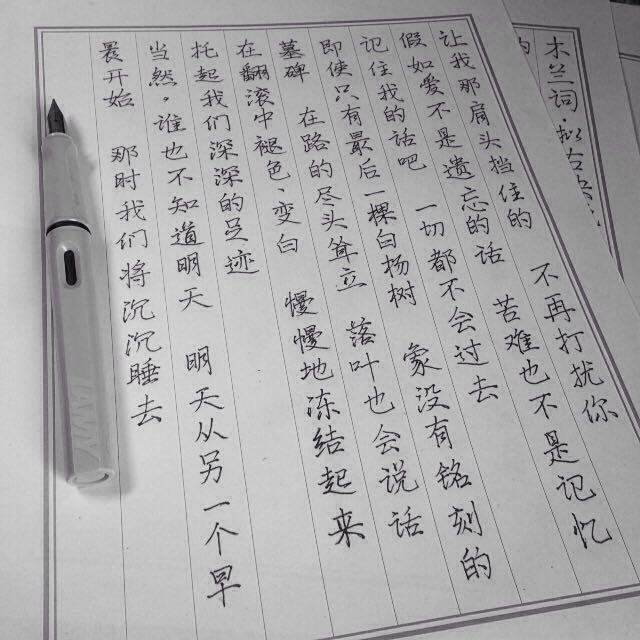 木兰词·拟古
让我那肩头挡住的 不再打扰你
假如爱不是遗忘的话 苦难也不是记忆
记住我的话吧 一切都不会过去
即使只有最后一棵白杨树 象没有铭刻的
墓碑 在路的尽头耸立 落叶也会说话
在翻滚中褪色、变白 慢慢地冻结起来
托起我们深深的足迹
当然,谁也不知道明天 明天从另一个早
晨开始 那时我们将沉沉睡去
LAMY